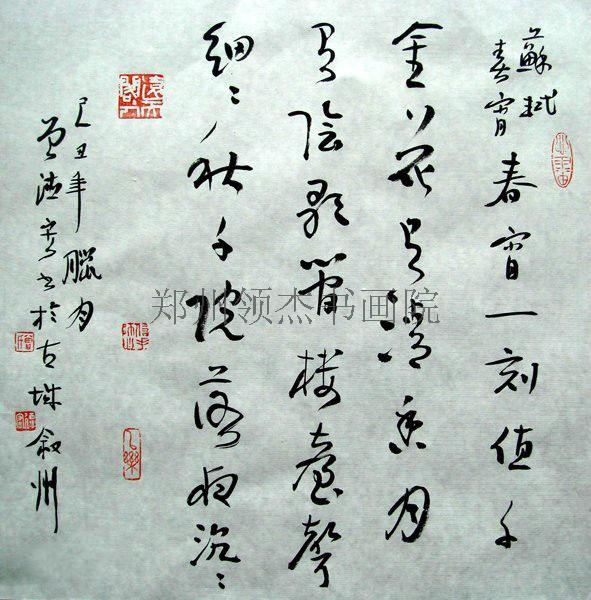 蘇軾
春宵
春宵一刻值千
金花有清香月
有陰歌管樓臺聲
細〻秋千院落夜沉〻
己丑年臘月
曾德书於古城叙州
郑州领杰书画院